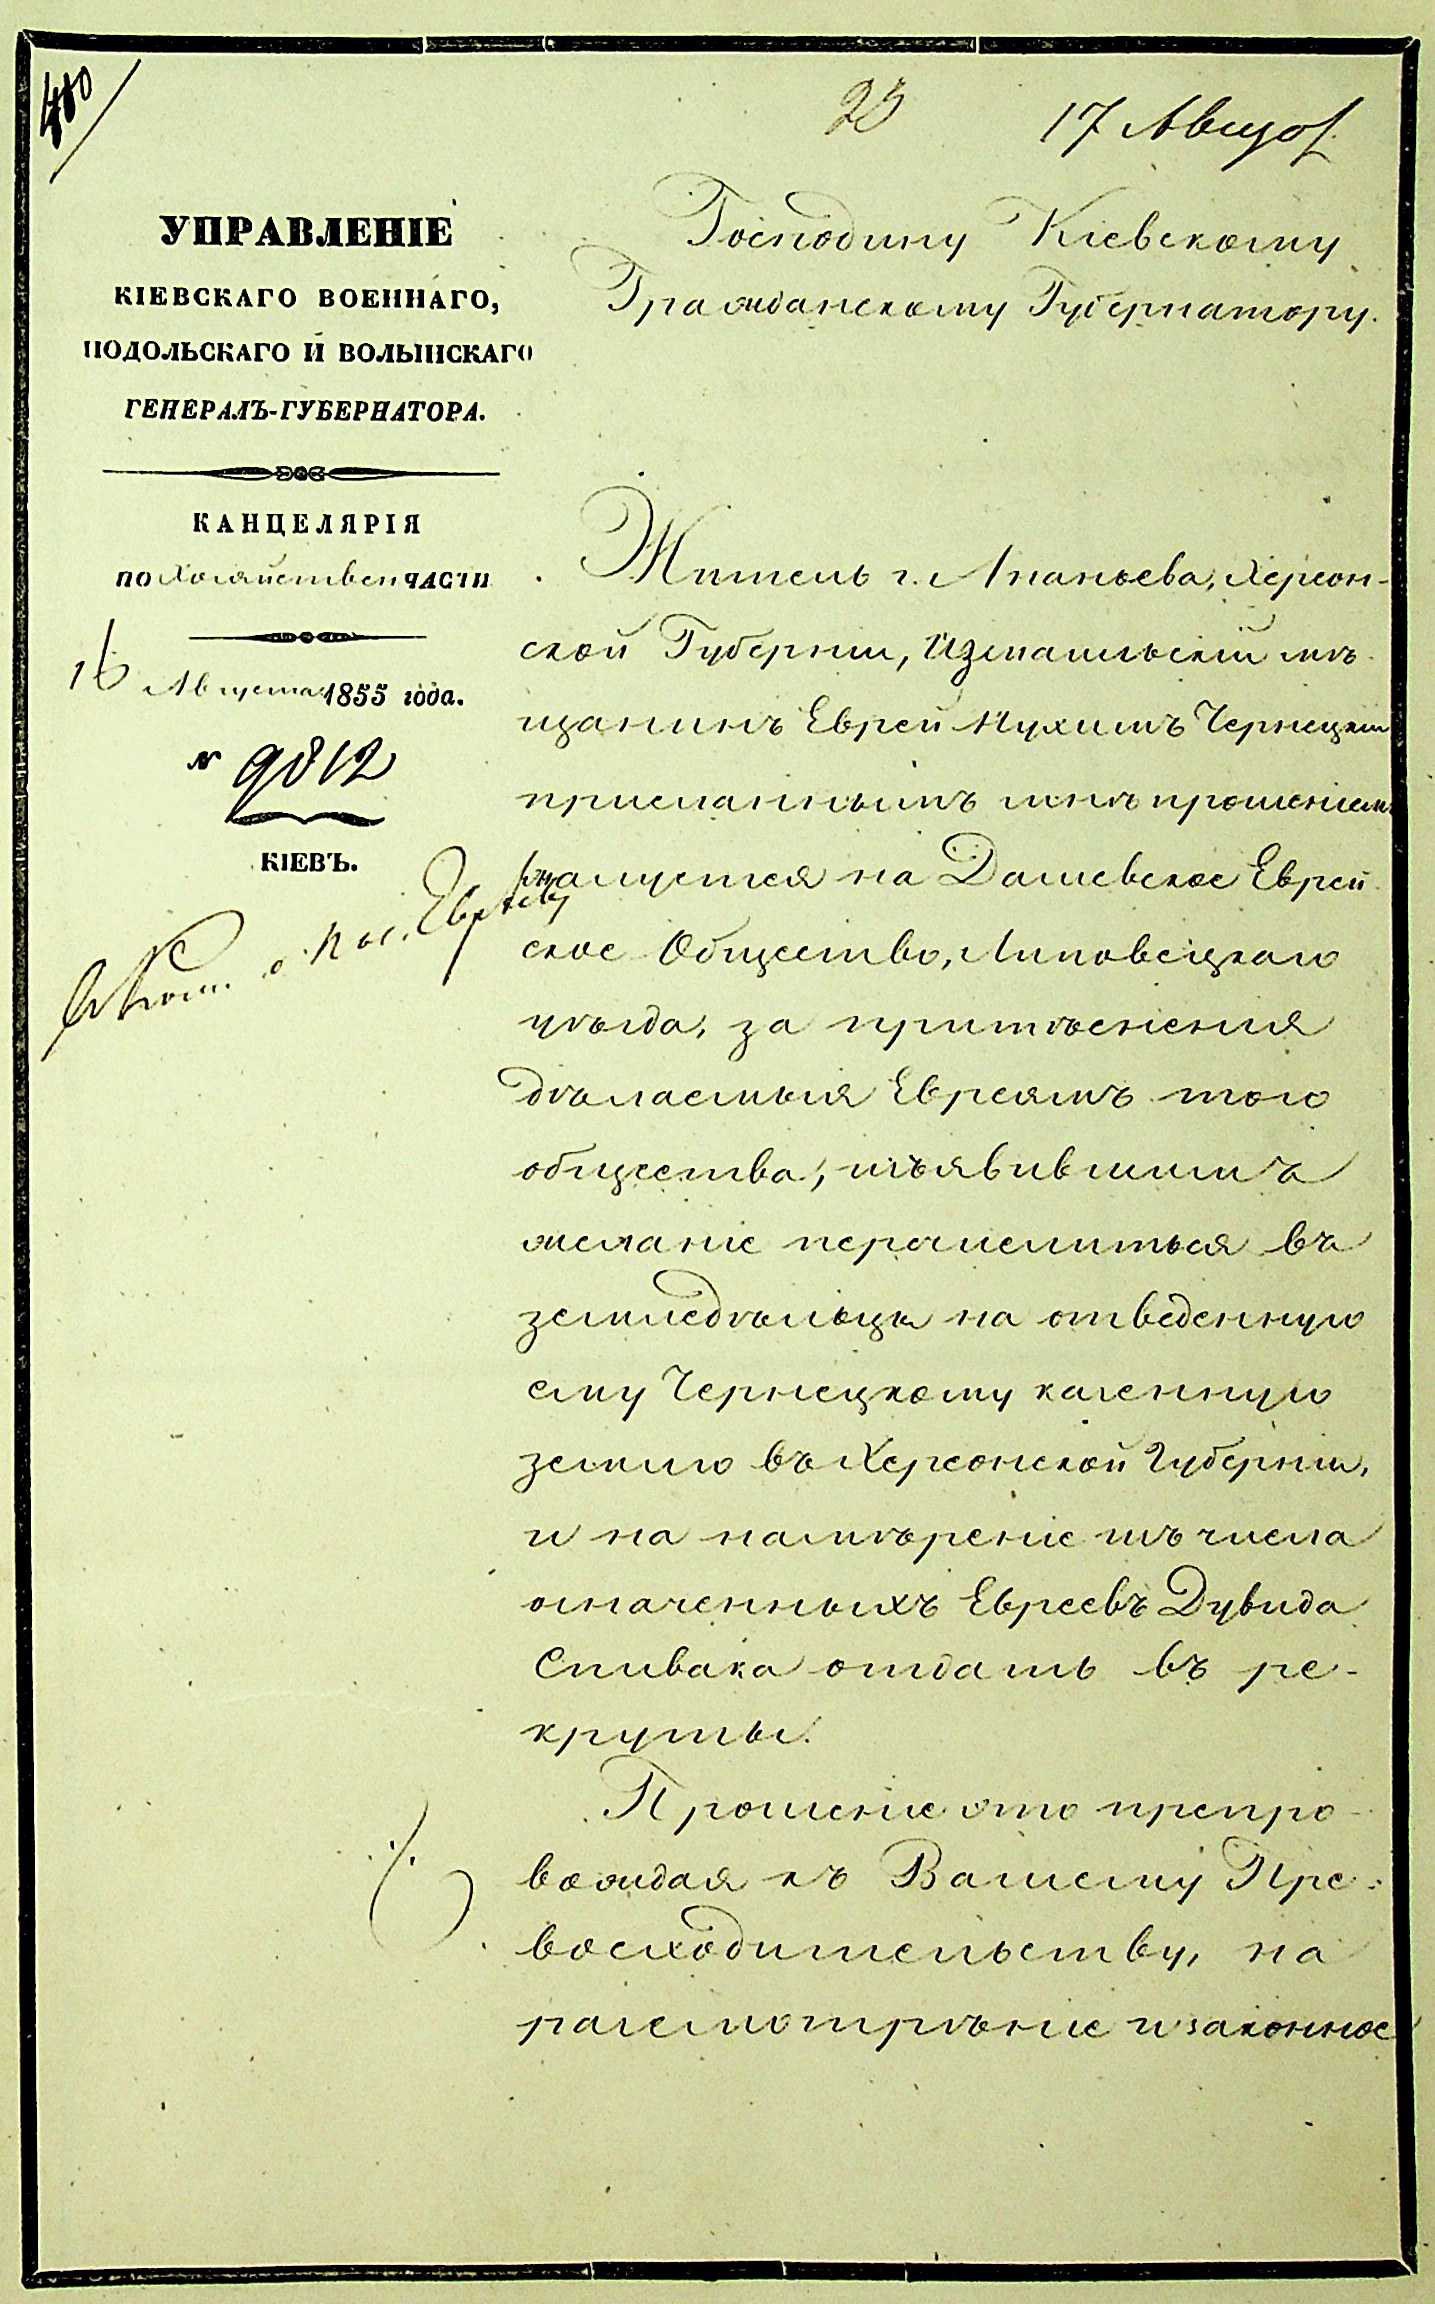 23
17 Август
УПРАВЛЕНІЕ
КІЕВСКАГО ВОЕННАГО,
ПОДОЛЬСКАГО И ВОЛЫНСКАГО
ГЕНЕРАЛЪ-ГУБЕРНАТОРА.
КАНЦЕЛЯРІЯ
ПО Хозяйствен ЧАСТИ
16 Августа 1855 года.
N 9812
КІЕВЪ.
Господину Кіевскому
Гражданскому Губернатору.
Житель г. Ананьева, Херсон-
ской Губерніи, Измаильскій мѣ-
щанинъ Еврей Нухимъ Чернецкій
присланнымъ мнѣ прошеніемъ
жалуется на Дашевское Еврей
ское Общество, Липовецкаго
уѣзда, за притѣсненія
дѣлаемыя Евреямъ того
общества, изъявившимъ
желаніе перечислиться въ
земледѣльцы на отведенную
ему Чернецкому казенную
землю въ Херсонской Губерніи,
и на намѣреніе изъ числа
означенныхъ Евреевъ Дувида
Спивака отдать въ ре-
круты.
Прошеніе это препро-
вождая къ Вашему Пре-
восходительству, на
разсмотрѣніе и законное